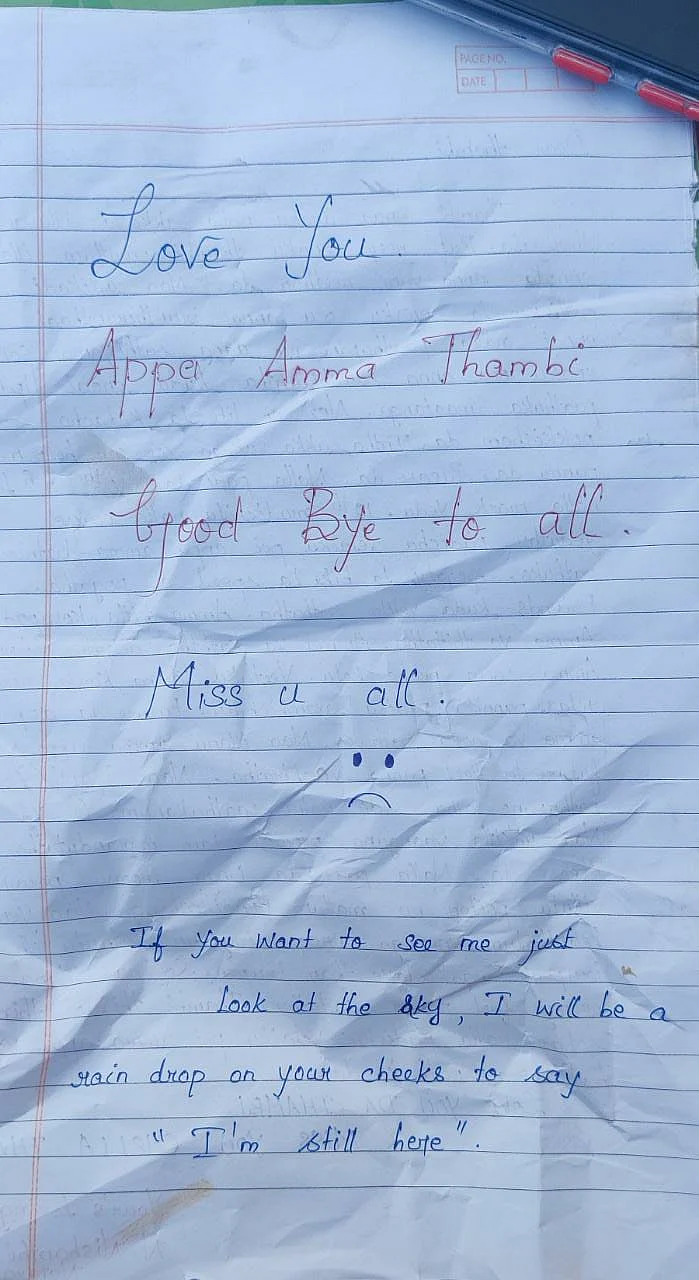 PAGE NO.
DATE
Love You.
Appa Amma Thambi
Good Bye to all.
Miss u all.
If you want to see me just
look at the sky, I will be a
rain drop on your cheeks to say
" I'm still here".